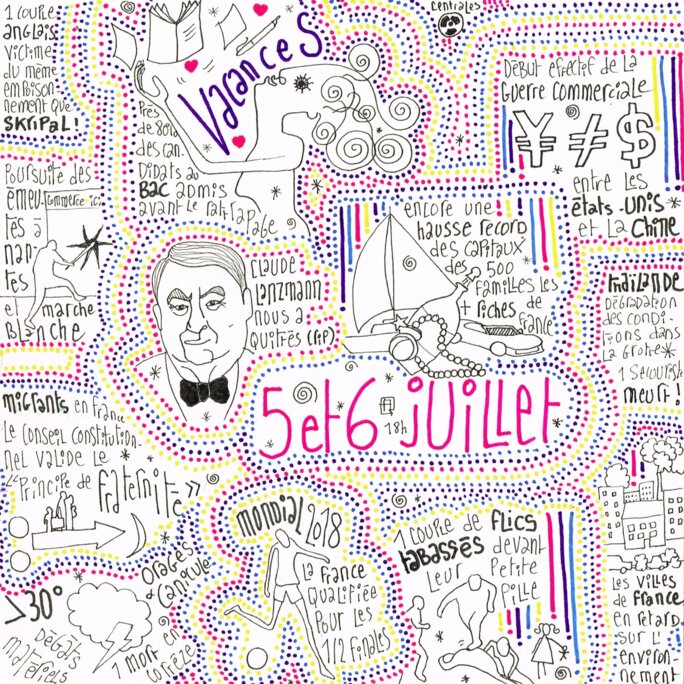 1 couple
anglais
victime
du même
empoison-
nement que
SKRIPAL !
Vacances
Près
de 80%
des can-
didats au
BAC admis
avant le rattrapage
centrales
Début effectif de la
guerre commerciale
¥ ≠ $
entre les
états-unis
et la Chine
Poursuite des
émeu-
tes à
nan-
tes
et marche
Blanche
commerce ici
Claude
Lanzmann
nous a
quittés (RIP)
encore une
hausse record
des capitaux
des 500
familles les
+ riches de
france
THAÏLANDE
Dégradation
des condi-
tions dans
la grotte
1 secouriste
meurt !
5 et 6 juillet
18h
migrants en france
Le conseil constitution-
nel valide le
"Principe de fraternité"
>30°
orages
& canicule
Dégâts
matériels
1 mort en
corrèze
Mondial 2018
La france
qualifiée
pour les
1/2 finales
1 couple de flics
tabassés devant
leur petite
fille
Les villes
de france
en retard
sur l'
environ-
nement